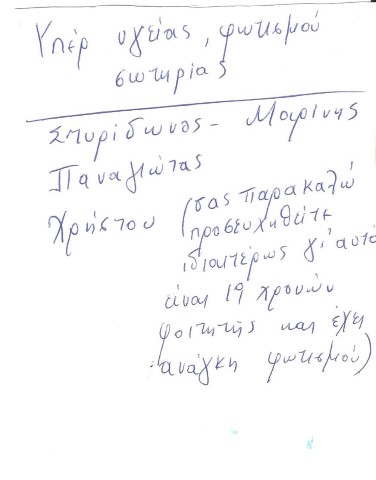 Υπέρ υγείας, φωτισμού
σωτηρίας
Σπυρίδωνος - Μαρίνης
Παναγιώτας
Χρήστου (σας παρακαλώ
προσευχηθείτε
ιδιαιτέρως γι' αυτό
είναι 19 χρονών
φοιτητής και έχει
ανάγκη φωτισμού)